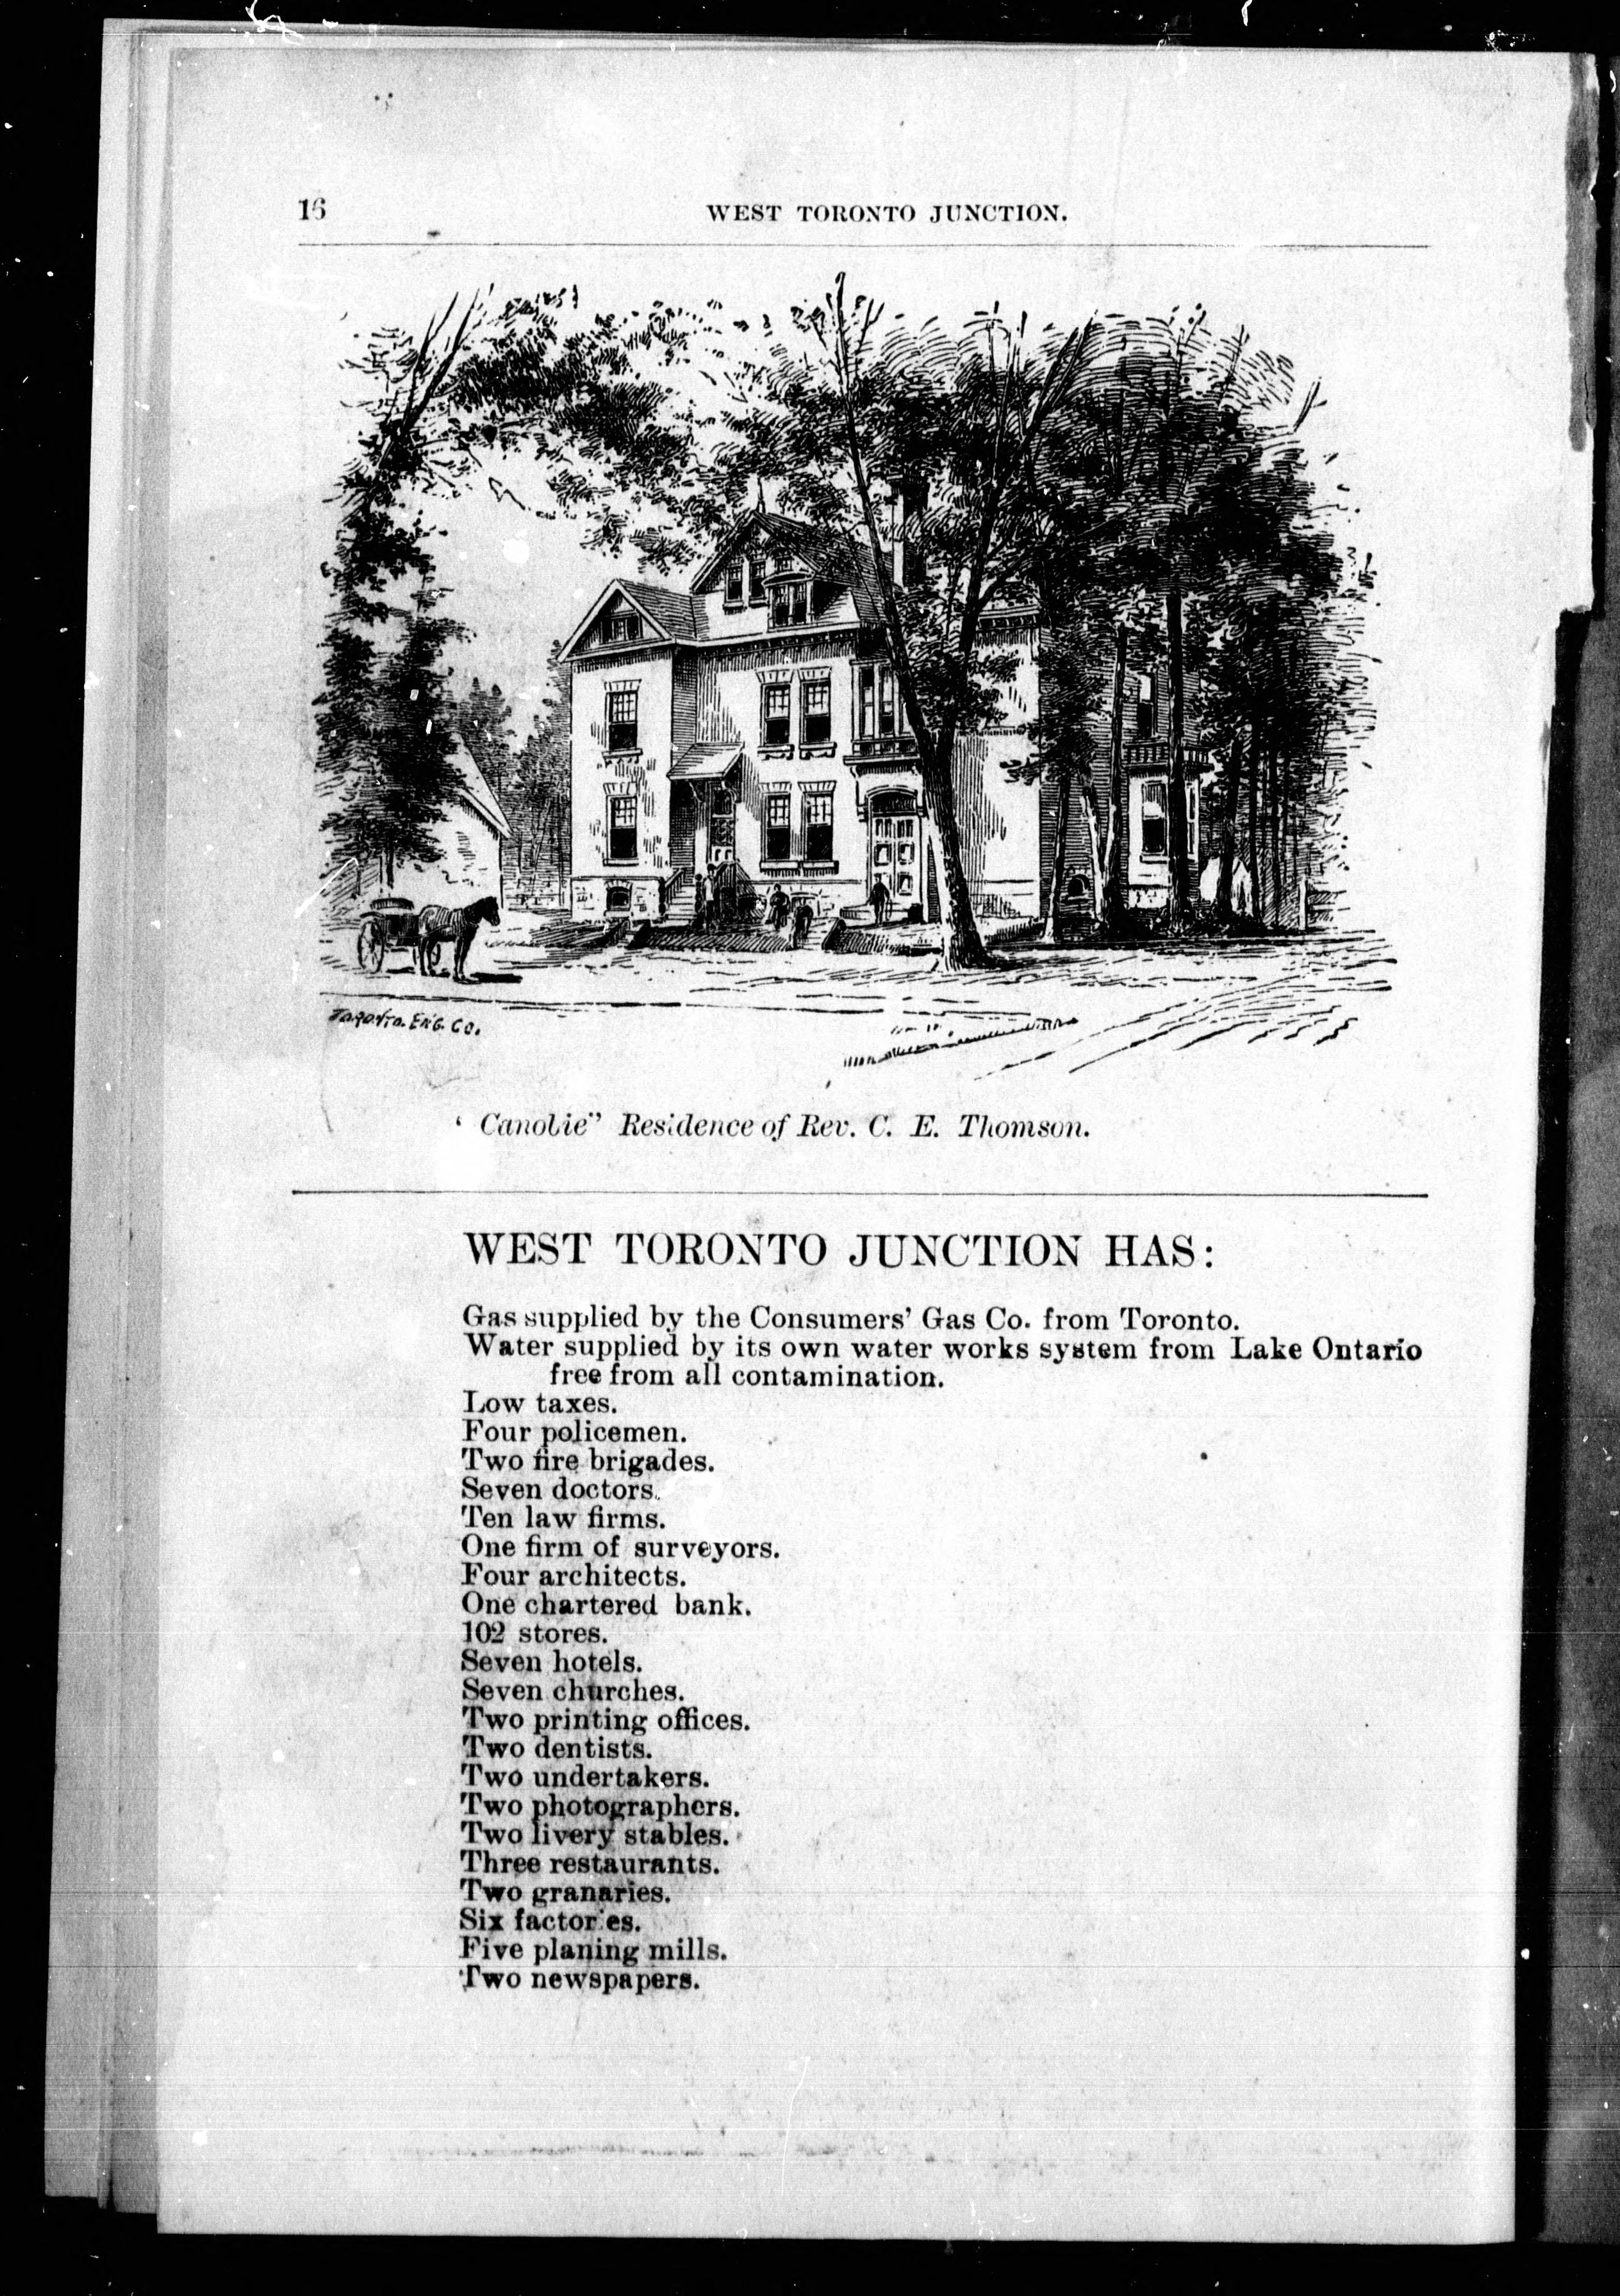 16
WEST TORONTO JUNCTION.
TORONTO. ENG. CO.
‘ Canobie” Residence of Rev. C. E. Thomson.
WEST TORONTO JUNCTION HAS:
Gas supplied by the Consumers’ Gas Co. from Toronto.
Water supplied by its own water works system from Lake Ontario
free from all contamination.
Low taxes.
Four policemen.
Two fire brigades.
Seven doctors.
Ten law firms.
One firm of surveyors.
Four architects.
One chartered bank.
102 stores.
Seven hotels.
Seven churches.
Two printing offices.
Two dentists.
Two undertakers.
Two photographers.
Two livery stables.
Three restaurants.
Two granaries.
Six factories.
Five planing mills.
Two newspapers.